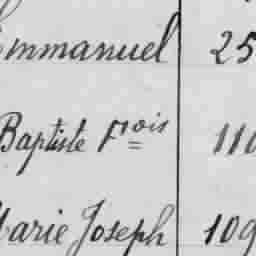 Emmanuel 25
Baptiste Frois 110
Marie Joseph 109